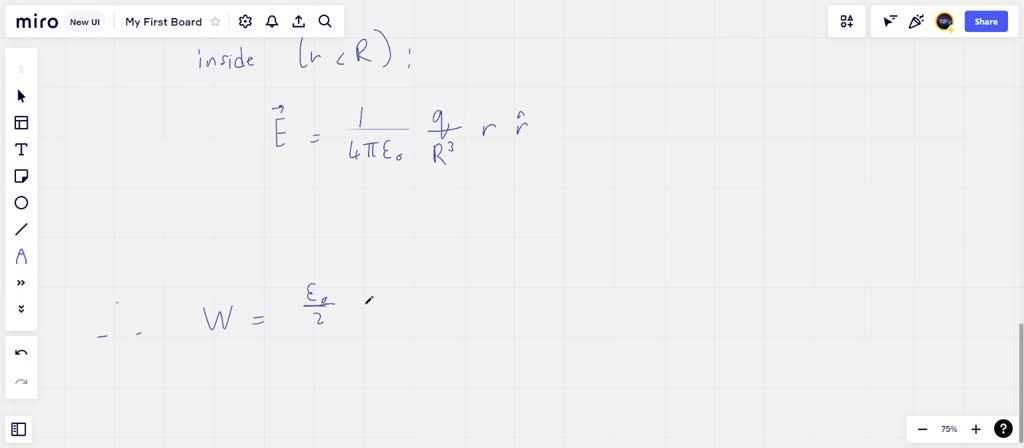 miro New UI My First Board Share
inside (r < R) :
E⃗ = 1/4πε₀ q/R³ r r̂
∴ W = ε₀/2
75%